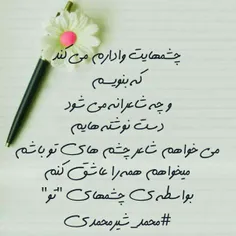 چشمهایت وادارم می کند
که بنویسم
و چه شاعرانه می شود
دست نوشته هایم
می خواهم شاعر چشم های تو باشم
میخواهم همه را عاشق کنم
بواسطه ی چشمهای "تو"
#محمد_شیرمحمدی